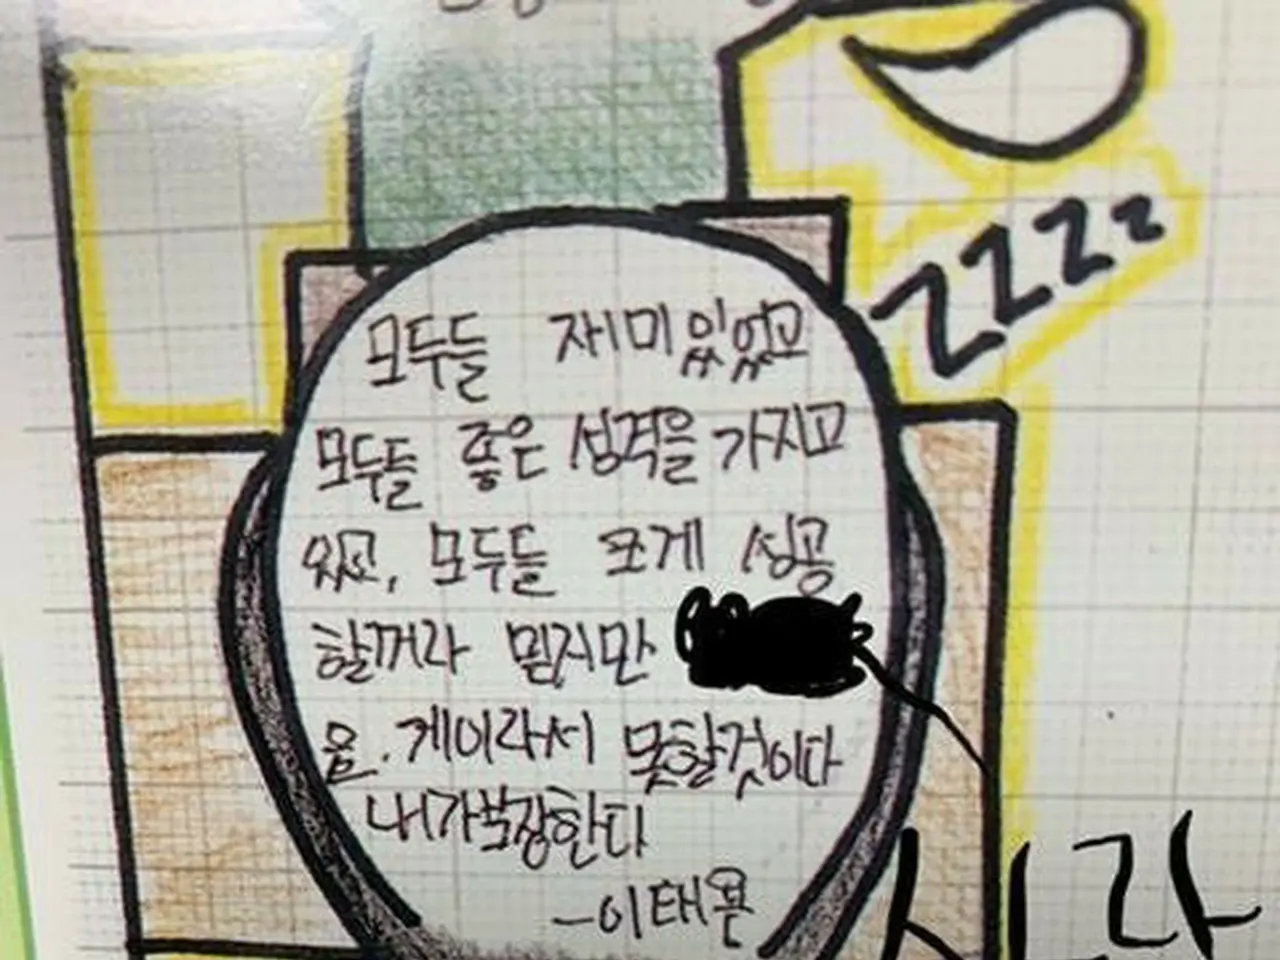 zzzz
모두들 재미있었고
모두들 좋은 성격을 가지고
있고, 모두들 크게 성공
할꺼라 믿지만
음. 게이라서 못할것이다
내가 보장한다
-이태